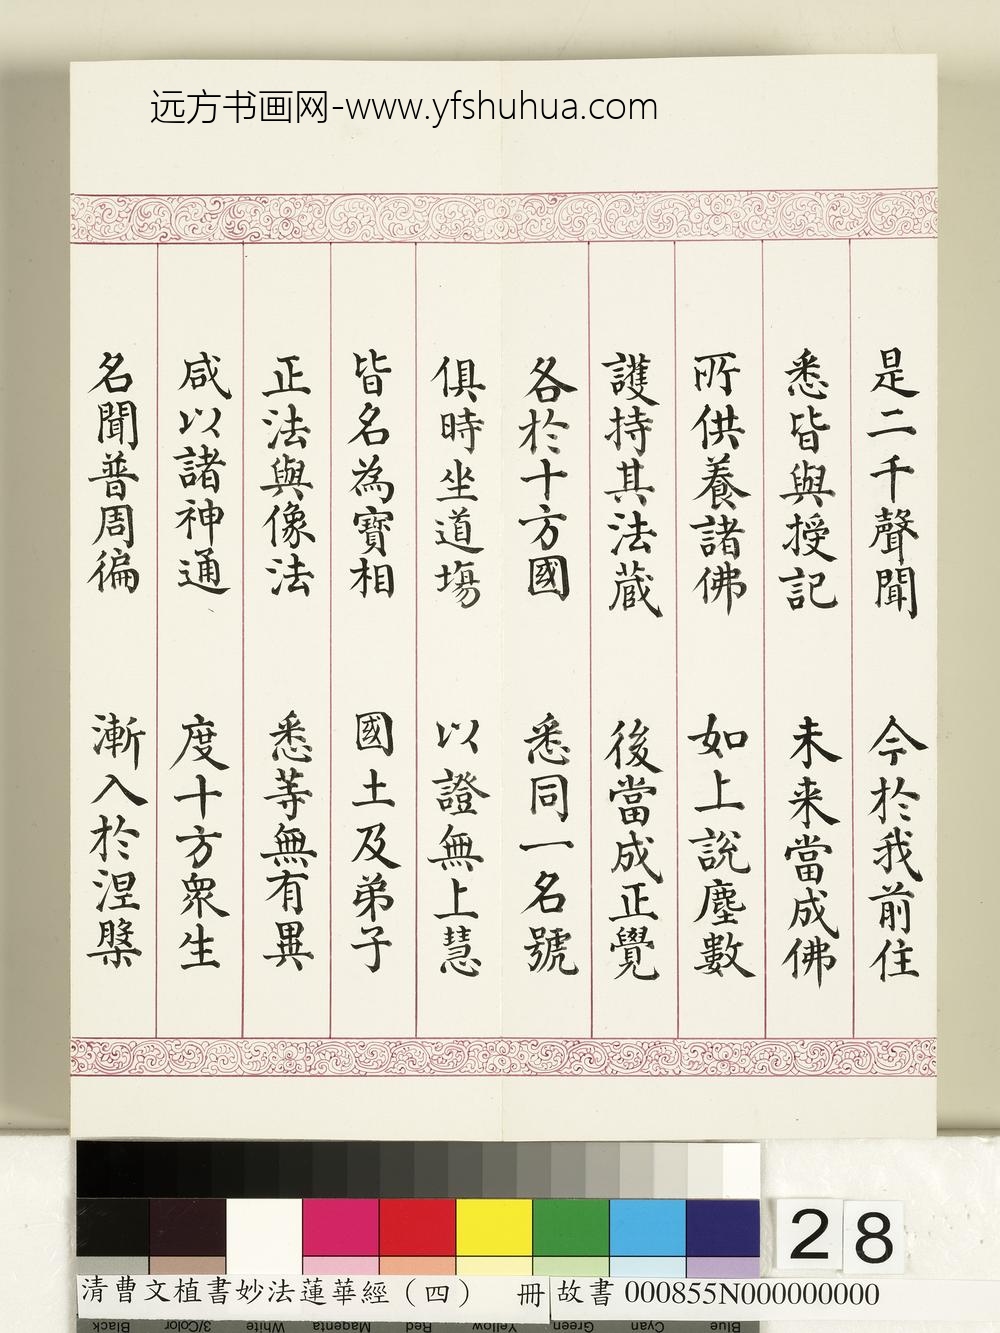 远方书画网-www.yfshuhua.com
是二千聲聞 今於我前住
悉皆與授記 未来當成佛
所供養諸佛 如上說塵數
護持其法蔵 後當成正覺
各於十方國 悉同一名號
俱時坐道場 以證無上慧
皆名為寳相 國土及弟子
正法與像法 悉等無有異
咸以諸神通 度十方衆生
名聞普周徧 漸入於涅槃
28
清曹文植書妙法蓮華經（四） 冊 故書 000855N000000000
Black 3/Color White Magenta Red Yellow Green Cyan Blue